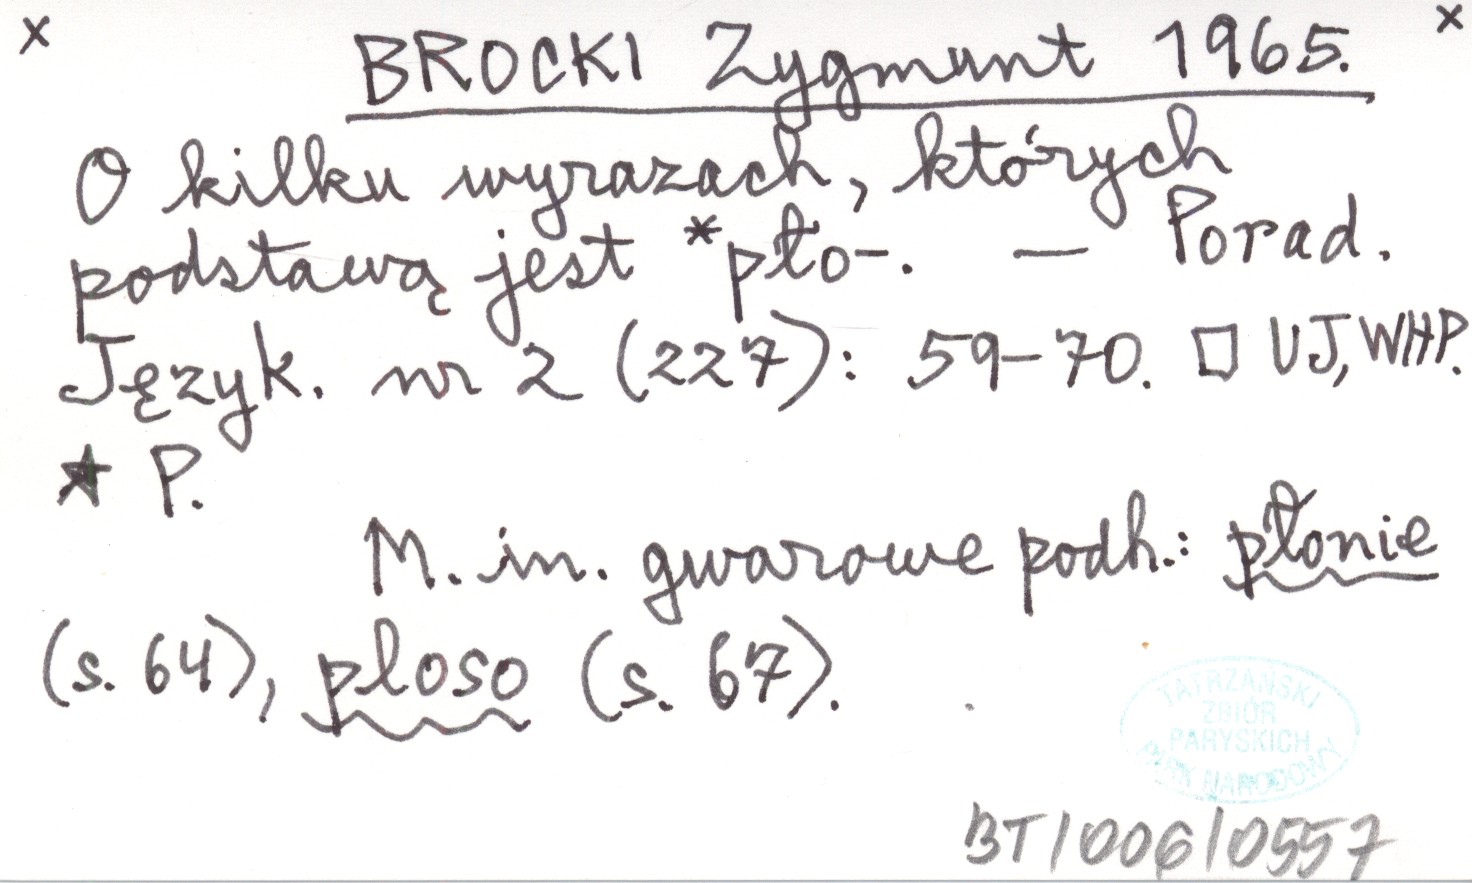 x BROCKI Zygmunt 1965. x
O kilku wyrazach, których
podstawą jest *pło-. — Porad.
Język. nr 2 (227): 59-70. □ UJ, WHP.
★ P.
M. in. gwarowe podh.: płonie
(s. 64), płoso (s. 67).
TATRZAŃSKI
ZBIÓR
PARYSKICH
PARK NARODOWY
BT/006/0557